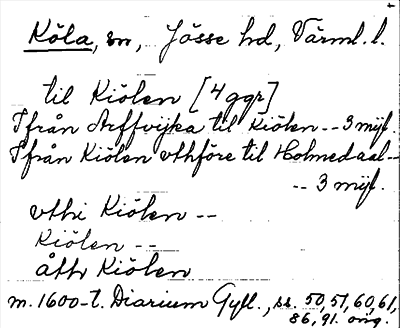 Köla, sn, Jösse hd, Värml. l.
til Kiölen [4 ggr]
Ifrån Arffvijka til Kiölen -- 3 mijl.
Ifrån Kiölen vthföre til Holmedaal --
-- 3 mijl.
vthi Kiölen --
Kiölen --
åth Kiölen
m. 1600-t. Diarium Gyll., ss. 50, 51, 60, 61,
86, 91. orig.